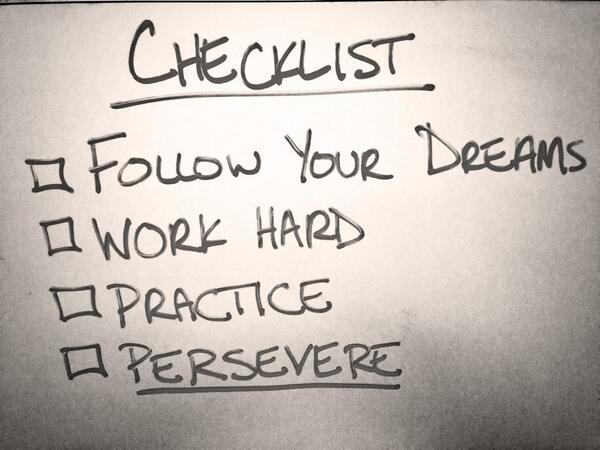 CHECKLIST
FOLLOW YOUR DREAMS
WORK HARD
PRACTICE
PERSEVERE